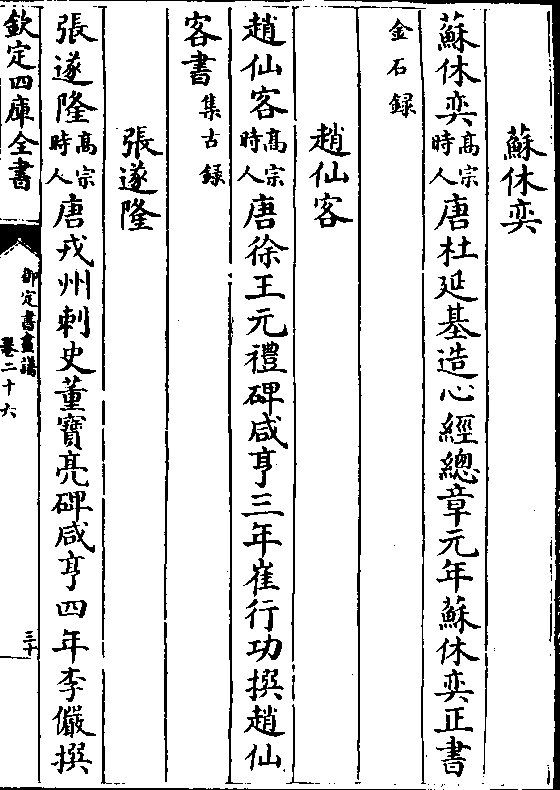 蘇休奕
蘇休奕髙宗時人唐杜延基造心經總章元年蘇休奕正書
金石録
趙仙客
趙仙客髙宗時人唐徐王元禮碑咸亨三年崔行功撰趙仙
客書集古録
張遂隆
張遂隆髙宗時人唐戎州刺史董寶亮碑咸亨四年李儼撰
欽定四庫全書
御定書畫譜
卷二十六
三十